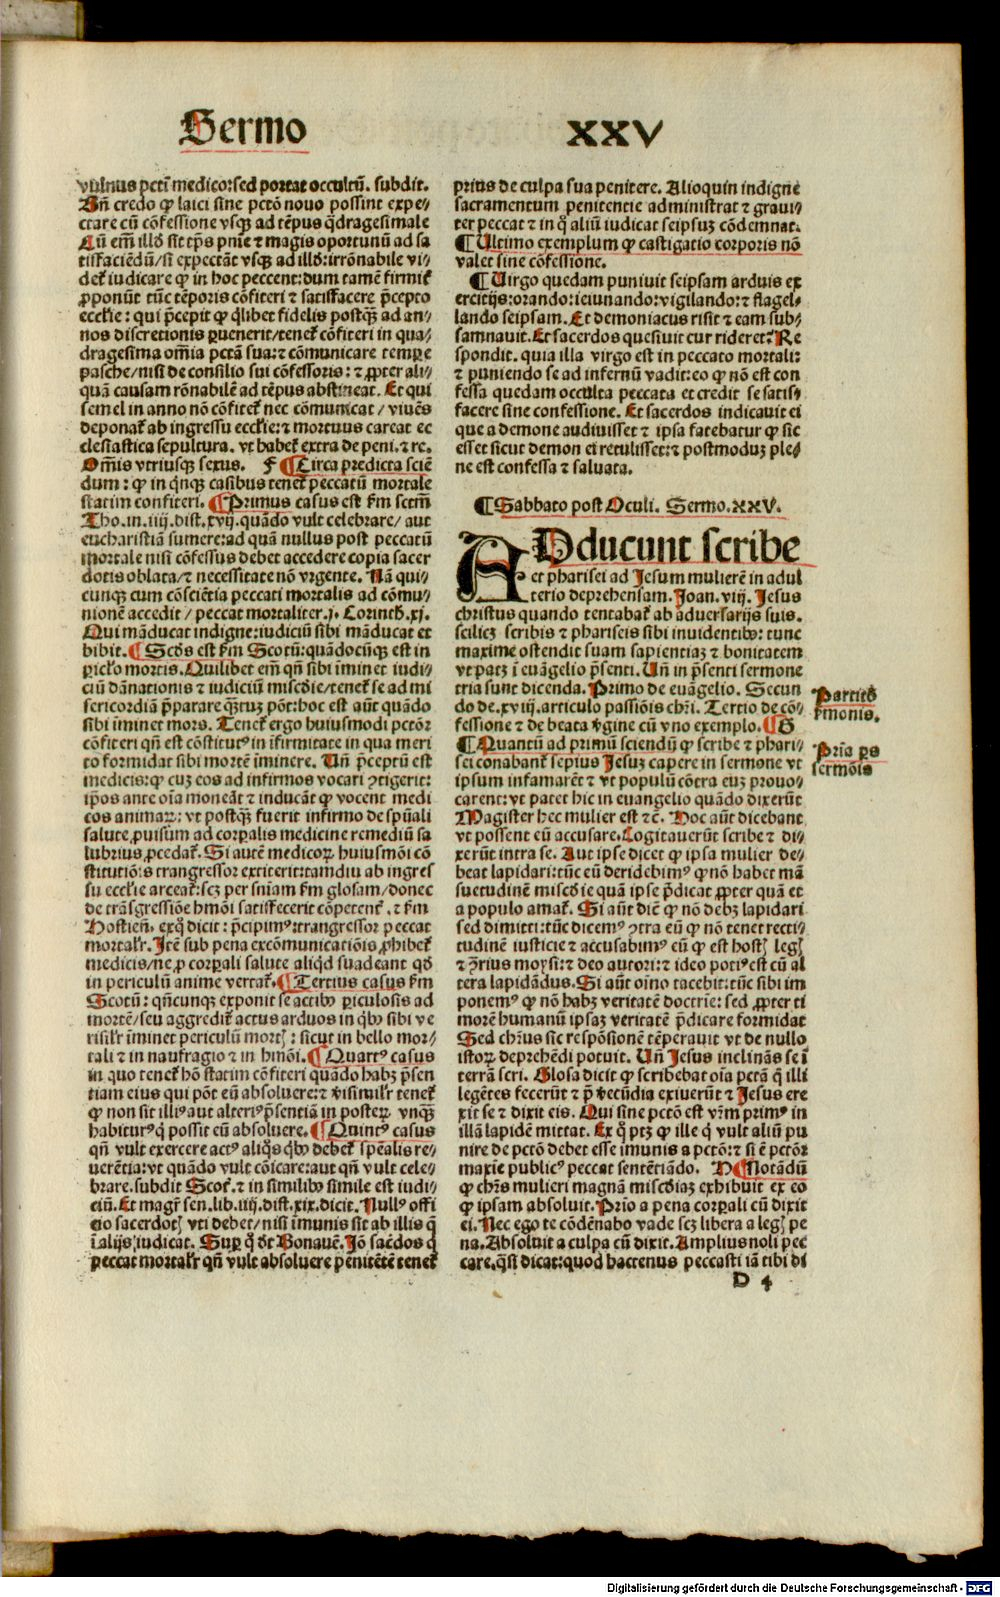 Sermo XXV
vulnus pctī medico: sed portat occultū. subdit.
Uñ credo ꝙ laici sine pctō nouo possint expe⸗
ctare cū cōfessione vsqꝫ ad tēpus q̄dragesimale
Cū em̄ illd̄ sit tp̄s pnīe ⁊ magis oportunū ad sa
tisfaciēdū/ si expectāt vsqꝫ ad illd̄: irrōnabile vi⸗
det᷑ iudicare ꝙ in hoc peccent: dum tamē firmit᷑
ꝓponūt tūc tēporis cōfiteri ⁊ satisfacere p̄cepto
eccl̄ie: qui p̄cepit ꝙ q̄libet fidelis postqꝫ ad an⸗
nos discretionis ꝑuenerit/ tenet᷑ cōfiteri in qua⸗
dragesima om̄ia pctā sua: ⁊ cōmunicare tempore
pasche/ nisi de consilio sui cōfessoris: ⁊ ꝓpter ali⸗
quā causam rōnabilē ad tēpus abstineat. Et qui
semel in anno nō cōfitet᷑ nec cōmunicat/ viuēs
deponat᷑ ab ingressu eccl̄ie: ⁊ mortuus careat ec
clesiastica sepultura. vt habet᷑ extra de peni. ⁊ re.
Om̄is vtriusqꝫ sexus. F ¶ Circa predicta sciē
dum: ꝙ in qnqꝫ casibus tenet᷑ peccatū mortale
statim confiteri. ¶ Primus casus est ẜm sctm̄
Tho. in. iiij. dist. xvij. quādo vult celebrare/ aut
eucharistiā sumere: ad quā nullus post peccatū
mortale nisi cōfessus debet accedere copia sacer
dotis oblata/ ⁊ necessitate nō vrgente. Nā qui⸗
cunqꝫ cum cōsciētia peccati mortalis ad cōmu⸗
nionē accedit/ peccat mortaliter. j. Corinth. xj.
Qui māducat indigne: iudiciū sibi māducat et
bibit. ¶ Scd̄s est ẜm Scotū: quādocūqꝫ est in
piclo mortis. Quilibet em̄ qñ sibi īminet iudi⸗
ciū dānationis ⁊ iudiciū miscdīe/ tenet᷑ se ad mi
sericordiā p̄parare q̄ꝫtuꝫ pōt: hoc est aūt quādo
sibi īminet mors. Tenet᷑ ergo huiusmodi pctōr
cōfiteri qñ est cōstitutꝰ in īfirmitate in qua meri
to formidat sibi mortē īminere. Uñ p̄ceptū est
medicis: ꝙ cuꝫ eos ad infirmos vocari ↄtigerit:
ip̄os ante oīa moneāt ⁊ inducāt ꝙ vocent medi
cos animaꝝ: vt postqꝫ fuerit infirmo de spūali
salute ꝓuisum ad corꝑalis medicine remediū sa
lubrius ꝓcedat᷑. Si autē medicoꝝ huiusmōi cō
stitutiōīs trangressor extiterit: tamdiu ab ingres
su eccl̄ie arceat᷑: scꝫ per sniam ẜm glosam/ donec
de trāsgressiōe hmōi satisfecerit cōpetent᷑. ⁊ ẜm
Hostien̄. exq̄ dicit: p̄cipimꝰ: trangressor peccat
mortalr̄. Itē sub pena excōmunicatiōis ꝓhibet᷑
medicis/ ne ꝓ corꝑali salute aliqd̄ suadeant qd̄
in periculū anime vertat᷑. ¶ Tertius casus ẜm
Scotū: qn̄cunqꝫ exponit se actibꝰ ꝑiculosis ad
mortē/ seu aggredit᷑ actus arduos in qbꝰ sibi ve
risilr̄ īminet periculū mortꝭ: sicut in bello mor⸗
tali ⁊ in naufragio ⁊ in hmōi. ¶ Quartꝰ casus
in quo tenet᷑ hō statim cōfiteri quādo habꝫ p̄sen
tiam eius qui pōt eū absoluere: ⁊ verisimilr̄ tenet᷑
ꝙ non sit illiꝰ aut alteriꝰ p̄sentiā in posteꝝ vnqꝫ
habiturꝰ q̄ possit eū absoluere. ¶ Quintꝰ casus
qñ vult exercere actꝰ aliqs̄ qbꝰ debet᷑ spēalis re⸗
uerētia: vt quādo vult cōicare: aut qñ vult cele⸗
brare. subdit Scot᷑. ⁊ in similibꝰ simile est iudi⸗
ciū. Et magr̄ sen. lib. iiij. dist. xix. dicit. Nullꝰ offi
cio sacerdotꝭ vti debet/ nisi īmunis sit ab illis q̄
ī alijs iudicat. Suꝑ q̄ dt Bonauē. Iō sacdos q̄
peccat mortalr̄ qñ vult absoluere pēnitētē tenet᷑
prius de culpa sua penitere. Alioquin indigne
sacramentum penitentie administrat ⁊ graui⸗
ter peccat ⁊ in q̄ aliū iudicat seipsuꝫ cōdemnat.
¶ Ultimo exemplum ꝙ castigatio corporis nō
valet sine cōfessione.
¶ Uirgo quedam puniuit seipsam arduis ex
ercitijs: orando: ieiunando: vigilando: ⁊ flagel⸗
lando seipsam. Et demoniacus risit ⁊ eam sub⸗
samnauit. Et sacerdos quesiuit cur rideret: Re
spondit. quia illa virgo est in peccato mortali:
⁊ puniendo se ad infernū vadit: eo ꝙ nō est con
fessa quedam occulta peccata et credit se satis⸗
facere sine confessione. Et sacerdos indicauit ei
que a demone audiuisset ⁊ ipsa fatebatur ꝙ sic
esset sicut demon ei retulisset: ⁊ postmoduꝫ ple⸗
ne est confessa ⁊ saluata.
¶ Sabbato post Oculi. Sermo. XXV.
ADducunt scribe
et pharisei ad Jesum mulierē in adul
terio deprehensam. Joan. viij. Jesus
christus quando tentabat᷑ ab aduersarijs suis.
scilicꝫ scribis ⁊ phariseis sibi inuidentibꝰ: tunc
maxime ostendit suam sapientiaꝫ ⁊ bonitatem
vt patꝫ ī euāgelio p̄senti. Uñ in p̄senti sermone
tria sunt dicenda. Primo de euāgelio. Secun
do de. xviij. articulo passiōis chr̄i. Tertio de cō⸗
fessione ⁊ de beata v̄gine cū vno exemplo. ¶ G
¶ Quantū ad primū sciendū ꝙ scribe ⁊ phari⸗
sei conabant᷑ sepius Jesuꝫ capere in sermone vt
ipsum infamarēt ⁊ vt populū cōtra euꝫ prouo⸗
carent: vt patet hic in euangelio quādo dixerūt
Magister hec mulier est ⁊c̄. Hoc aūt dicebant
vt possent eū accusare. Cogitauerūt scribe ⁊ di⸗
xerūt intra se. Aut ipse dicet ꝙ ipsa mulier de⸗
beat lapidari: tūc eū deridebimꝰ ꝙ nō habet mā
suetudinē miscdīe quā ipse p̄dicat ꝓpter quā et
a populo amat᷑. Si aūt dicit ꝙ nō debꝫ lapidari
sed dimitti: tūc dicemꝰ ↄtra eū ꝙ nō tenet recti⸗
tudinē iusticie ⁊ accusabimꝰ eū ꝙ est hostꝭ legꝭ
⁊ ↄ̄rius moysi: ⁊ deo autori: ⁊ ideo potiꝰ est cū al
tera lapidādus. Si aūt oīno tacebit: tūc sibi im
ponemꝰ ꝙ nō habꝫ veritatē doctrīe: sed ꝓpter ti
morē humanū ipsaꝫ veritatē p̄dicare formidat
Sed chr̄us sic respōsionē tēperauit vt de nullo
istoꝝ deprehēdi potuit. Uñ Jesus inclinās se ī
terrā scri. Glosa dicit ꝙ scribebat oīa pctā q̄ illi
legētes fecerūt ⁊ p̄ v̄ecūdia exiuerūt ⁊ Jesus ere
xit se ⁊ dixit eis. Qui sine pctō est vr̄m primꝰ in
illā lapidē mittat. Ex q̄ ptꝫ ꝙ ille q̄ vult aliū pu
nire de pctō debet esse imunis a pctō: ⁊ si ē pctōr
maxīe publicꝰ peccat sentētiādo. H ¶ Notādū
ꝙ chr̄s mulieri magnā miscdiaꝫ exhibuit ex eo
ꝙ ipsam absoluit. Prīo a pena corꝑali cū dixit
ei. Nec ego te cōdēnabo vade scꝫ libera a legꝭ pe
na. Absoluit a culpa cū dixit. Amplius noli pec
care. q̄si dicat: quod hactenus peccasti iā tibi di
D 4
Partitō
ẜmonis.
Prīa ps
sermōis
Digitalisierung gefördert durch die Deutsche Forschungsgemeinschaft - DFG